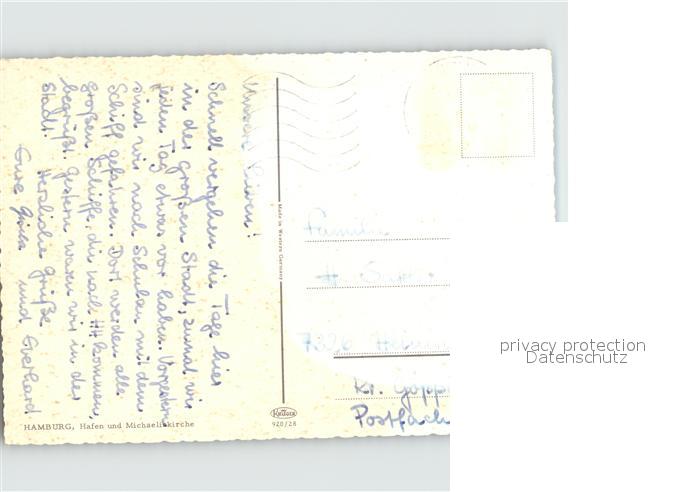 Unsere Lieben!
Schnell vergehen die Tage hier
in der großen Stadt, zumal wir
jeden Tag etwas vor haben. Vorgestern
sind wir nach Schulau mit dem
Schiff gefahren. Dort werden alle
großen Schiffe, die nach HH kommen,
begrüßt. Gestern waren wir in der
Stadt. Herzliche Grüße
Eure und Everhard
HAMBURG, Hafen und Michaeliskirche
Made in Western Germany
Krüger
920/28
Familie
H.
7326
Kr. Göpp
Postfach
privacy protection
Datenschutz